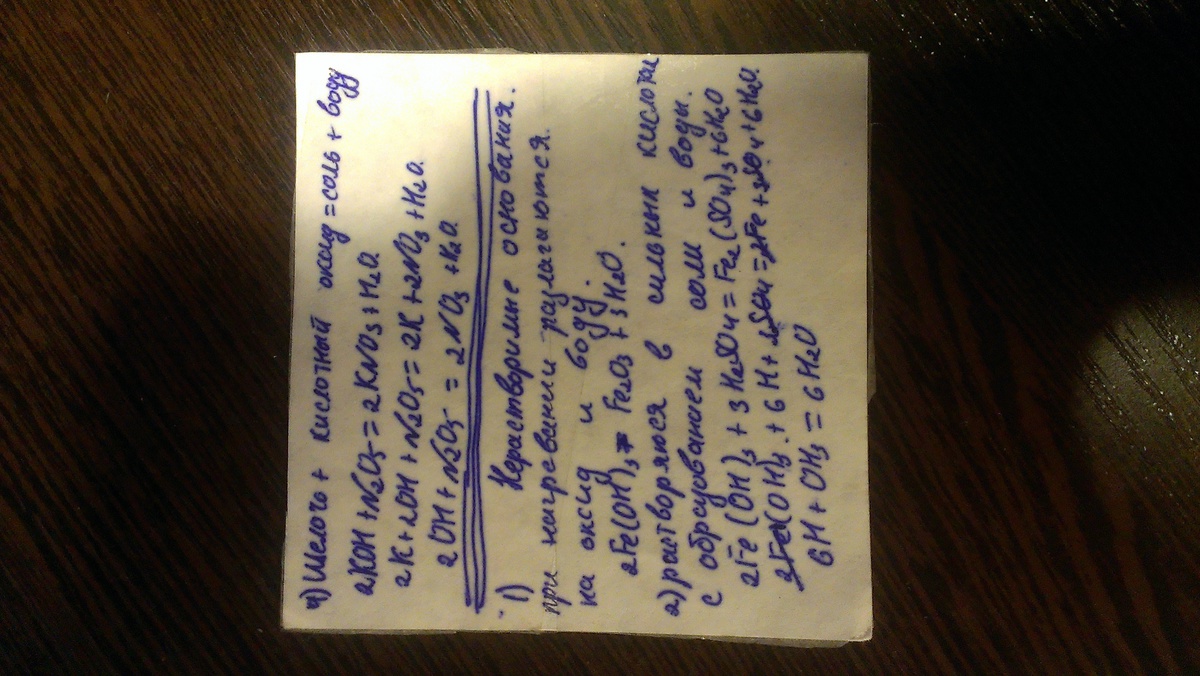 4) Щелочь + кислотный оксид = соль + воду
2KOH + N2O5 = 2KNO3 + H2O.
2K + 2OH + N2O5 = 2K + 2NO3 + H2O.
2OH + N2O5 = 2NO3 + H2O.
1) Нерастворимые основания.
при нагревании разлагаются
на оксид и воду.
2Fe(OH)3 = Fe2O3 + 3H2O.
2) растворяются в сильных кислотах
с образованием соли и воды.
2Fe(OH)3 + 3H2SO4 = Fe2(SO4)3 + 6H2O
2Fe(OH)3 + 6H + 3SO4 = 2Fe + 3SO4 + 6H2O.
6H + OH3 = 6H2O